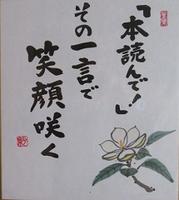 「本読んで!」
その一言で
笑顔咲く